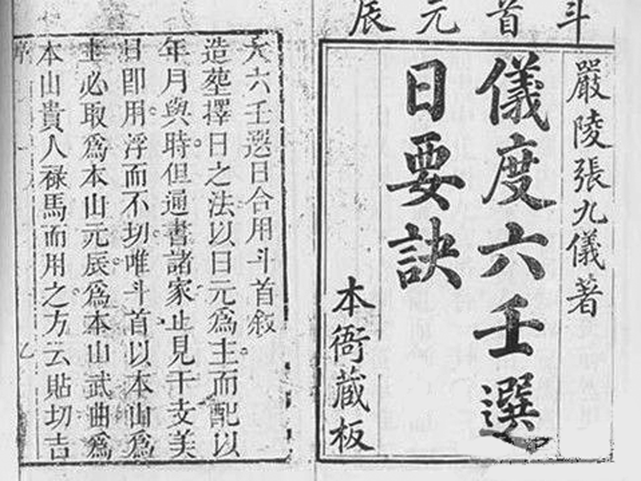 斗首元辰
嚴陵張九儀著
儀度六壬選
日要訣
本衙藏板
大六壬選日合用斗首叙
造塟擇日之法以日元爲主而配以
年月與時但通書諸家止見干支美
日即用浮而不切唯斗首以本山爲
主必取爲本山元辰爲本山武曲爲
本山貴人祿馬而用之方云貼切吉
序